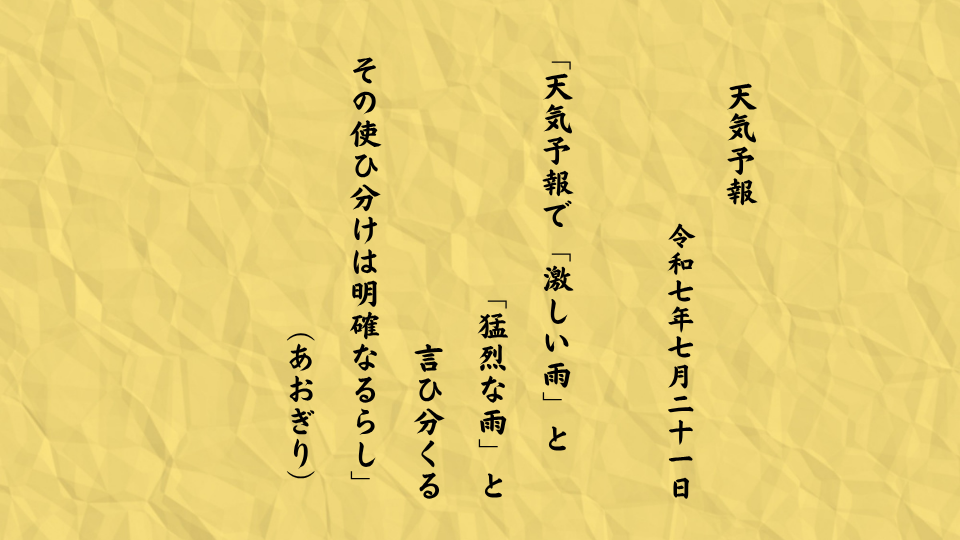 天気予報
令和七年七月二十一日
「天気予報で「激しい雨」と
「猛烈な雨」と
言ひ分くる
その使ひ分けは明確なるらし」
（あおぎり）